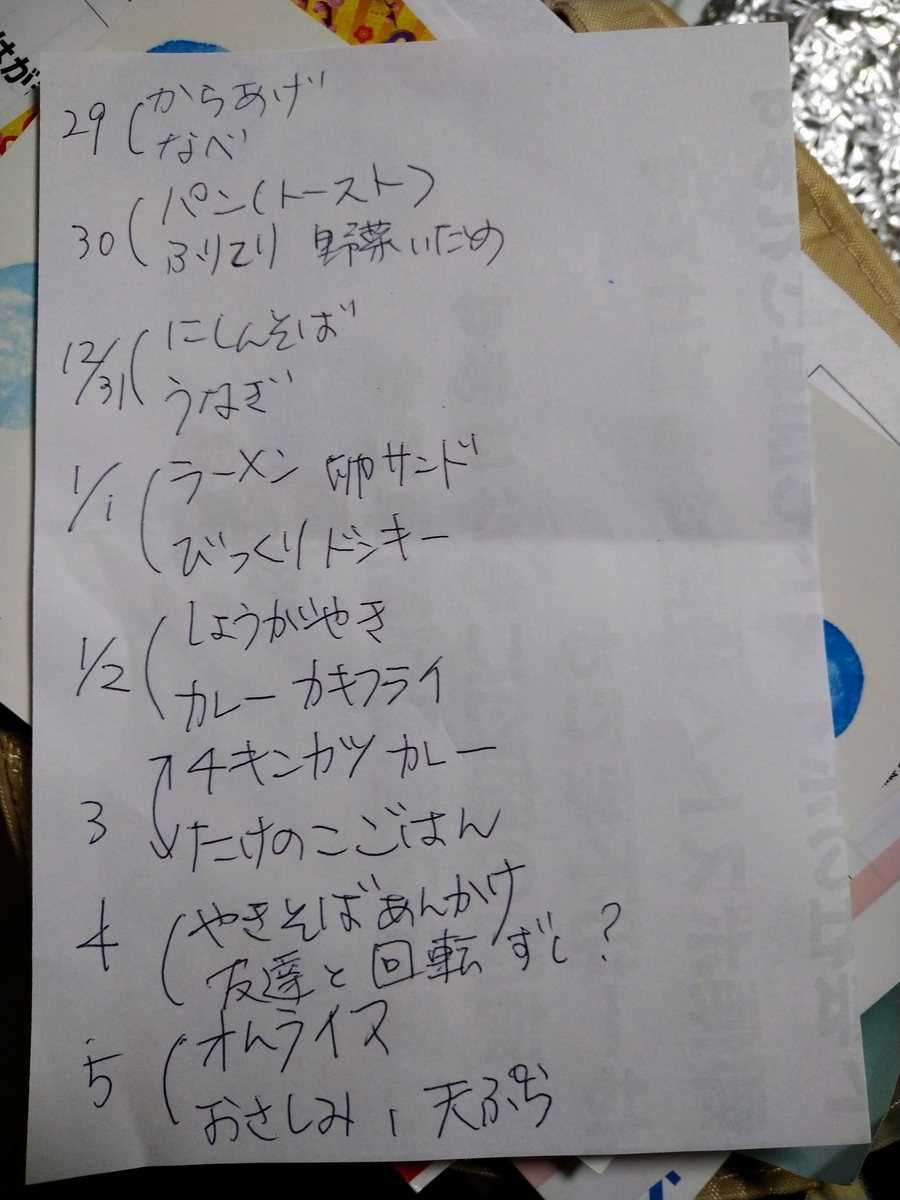 はが
29 からあげ
なべ
30 パン(トースト)
ぶりてり 野菜いため
12/31 にしんそば
うなぎ
1/1 ラーメン 卵サンド
びっくりドンキー
1/2 しょうがやき
カレー カキフライ
3 チキンカツカレー
たけのこごはん
4 やきそばあんかけ
友達と回転ずし?
5 オムライス
おさしみ、天ぷら